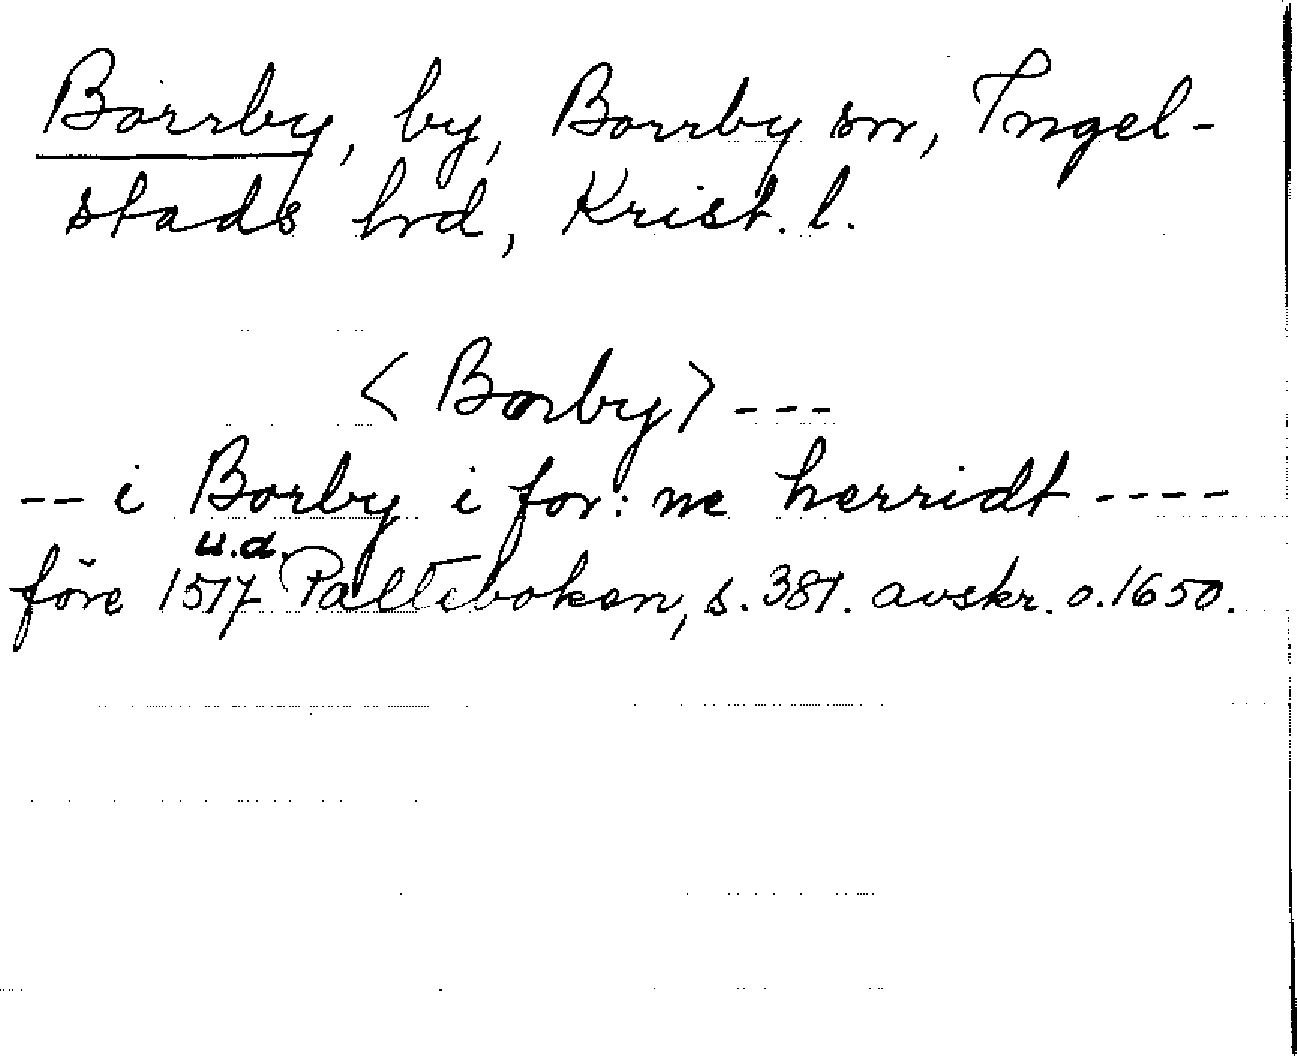 Borrby, by, Borrby sn, Ingel-
stads hrd, Krist. l.
< Borby > ---
-- i Borby i for: ne herridt ----
u.d.
före 1517 Palteboken, s. 381. avskr. o. 1650.